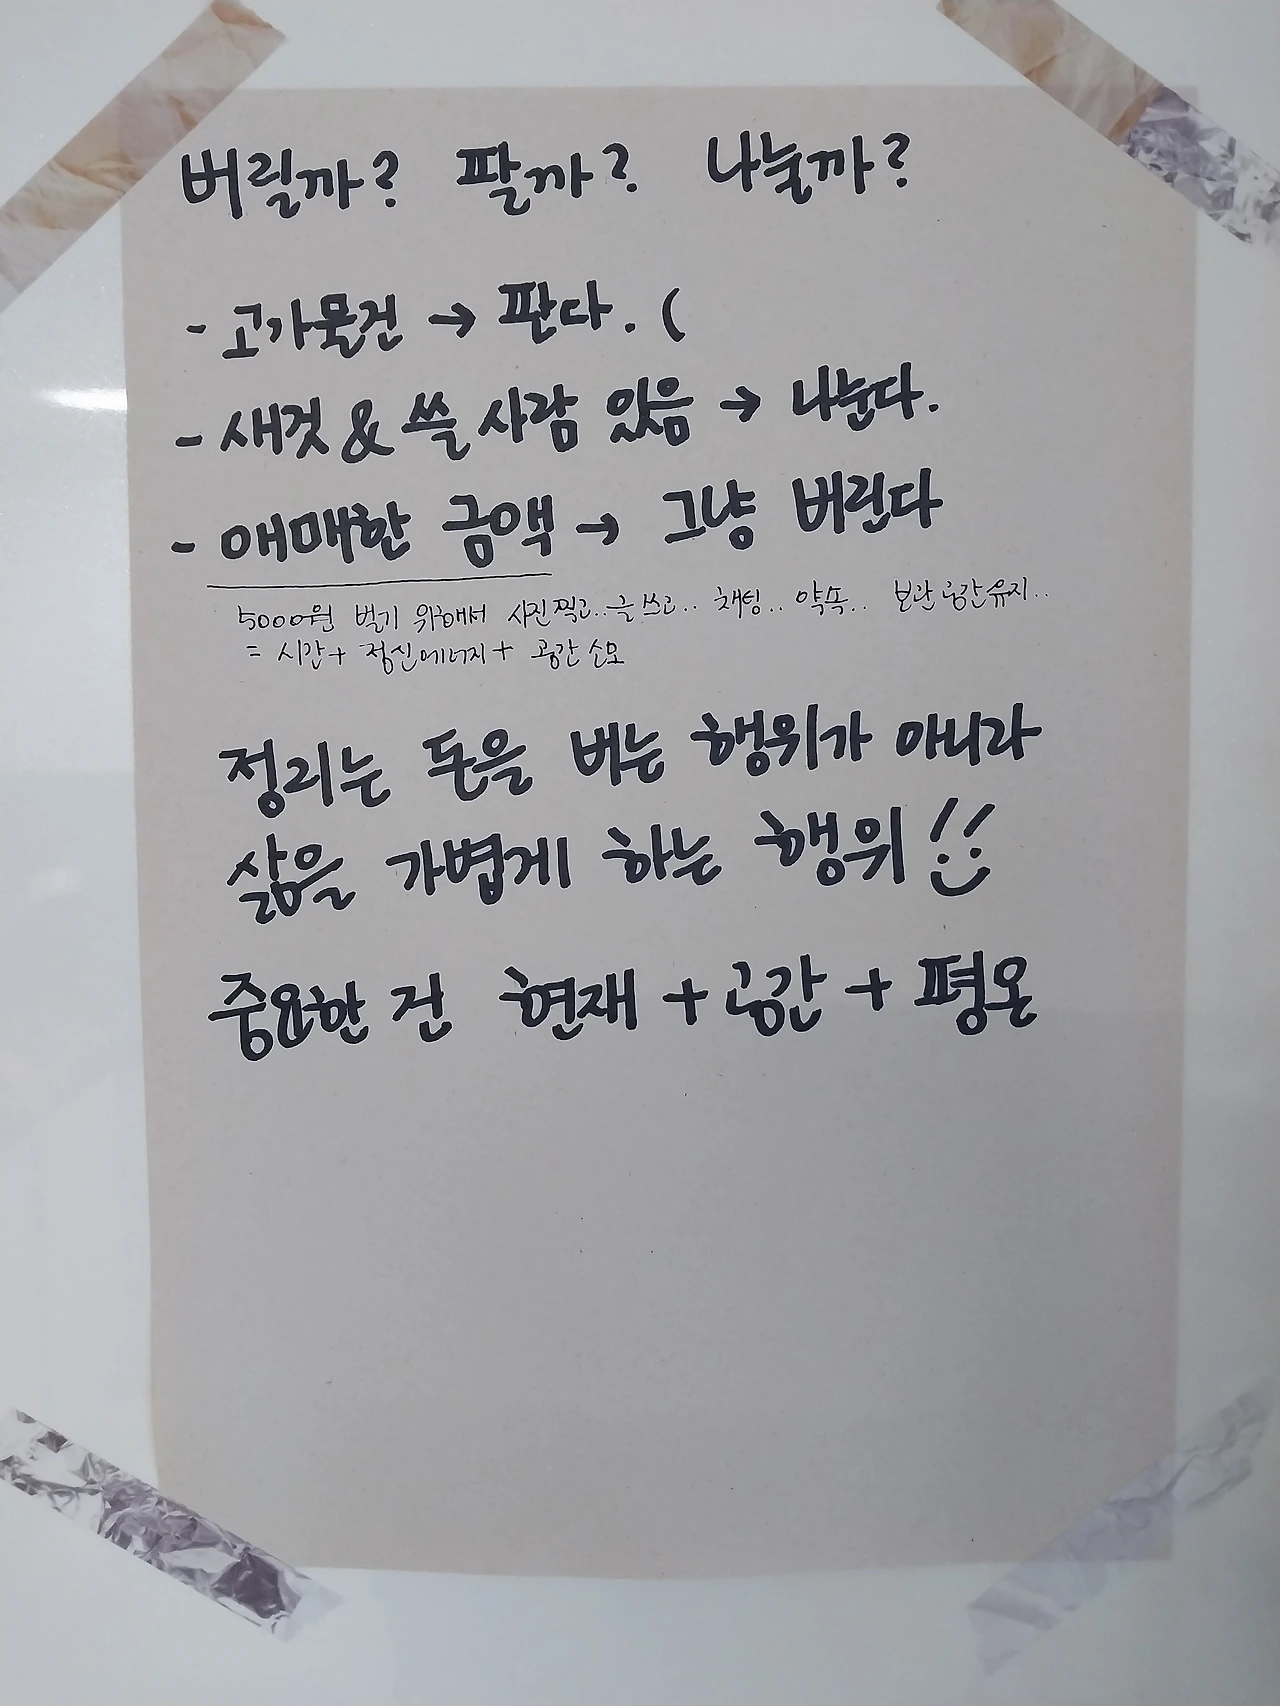 버릴까? 팔까? 나눌까?
- 고가물건 → 판다. (
- 새것 & 쓸 사람 있음 → 나눈다.
- 애매한 금액 → 그냥 버린다
5000원 벌기 위해서 사진찍고.. 글쓰고.. 채팅.. 약속.. 보관공간유지..
= 시간+ 정신에너지+ 공간 소모
정리는 돈을 버는 행위가 아니라
삶을 가볍게 하는 행위!!
중요한 건 현재 + 공간 + 평온